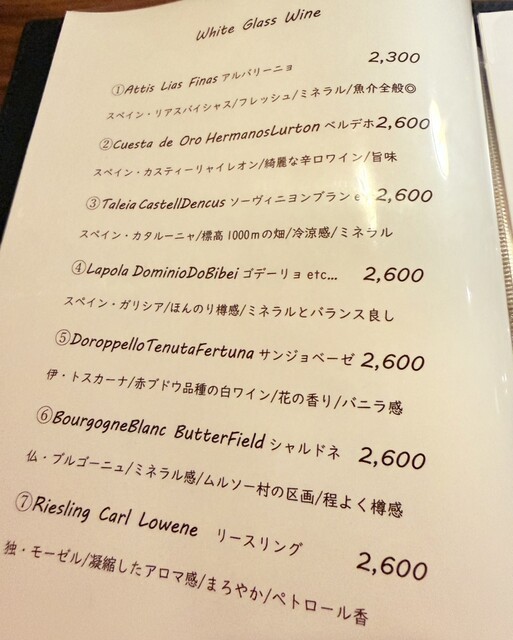 White Glass Wine
①Attis Lias Finas アルバリーニョ 2,300
スペイン・リアスバイシャス/フレッシュ/ミネラル/魚介全般◎
②Cuesta de Oro HermanosLurton ベルデホ 2,600
スペイン・カスティーリャイレオン/綺麗な辛口ワイン/旨味
③Taleia CastellDencus ソーヴィニヨンブラン e 2,600
スペイン・カタルーニャ/標高1000mの畑/冷涼感/ミネラル
④Lapola DominioDoBibei ゴデーリョ etc... 2,600
スペイン・ガリシア/ほんのり樽感/ミネラルとバランス良し
⑤DoroppelloTenutaFertuna サンジョベーゼ 2,600
伊・トスカーナ/赤ブドウ品種の白ワイン/花の香り/バニラ感
⑥BourgogneBlanc ButterField シャルドネ 2,600
仏・ブルゴーニュ/ミネラル感/ムルソー村の区画/程よく樽感
⑦Riesling Carl Lowene リースリング 2,600
独・モーゼル/凝縮したアロマ感/まろやか/ペトロール香